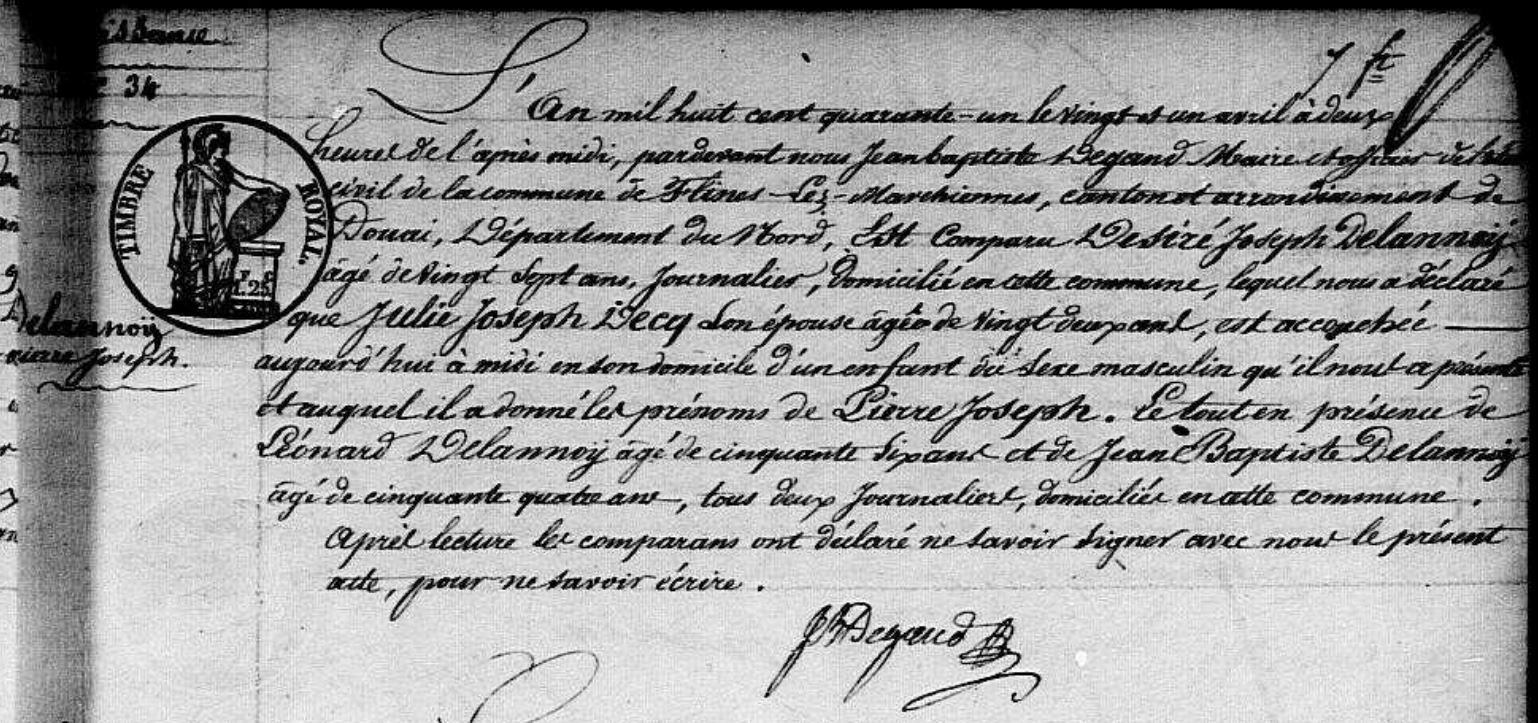 34
7 ft
L'An mil huit cent quarante-un le vingt et un avril à deux
heures de l'après midi, pardevant nous Jeanbaptiste Degand Maire et officier de l'état
civil de la commune de Flines-Lez-Marchiennes, canton et arrondissement de
Douai, Département du Nord, Est Comparu Désiré Joseph Delannoÿ
âgé de vingt sept ans, Journalier, domicilié en cette commune, lequel nous a déclaré
que Julie Joseph Decq son épouse âgée de vingt deux ans, est accouchée
aujourd'hui à midi en son domicile d'un enfant du sexe masculin qu'il nous a présenté
et auquel il a donné les prénoms de Pierre Joseph. Le tout en présence de
Léonard Delannoÿ âgé de cinquante six ans et de Jean Baptiste Delannoÿ
âgé de cinquante quatre ans, tous deux Journaliers, domiciliés en cette commune.
Après lecture les comparans ont déclaré ne savoir signer avec nous le présent
acte, pour ne savoir écrire.
JB Degand
TIMBRE ROYAL.
F. C.
1.25
Delannoÿ
Pierre Joseph.